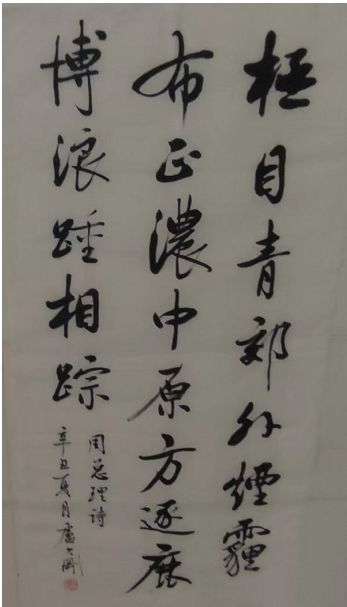 極目青郊外煙霾
布正濃中原方逐鹿
博浪踵相踪
周总理诗
辛丑夏月